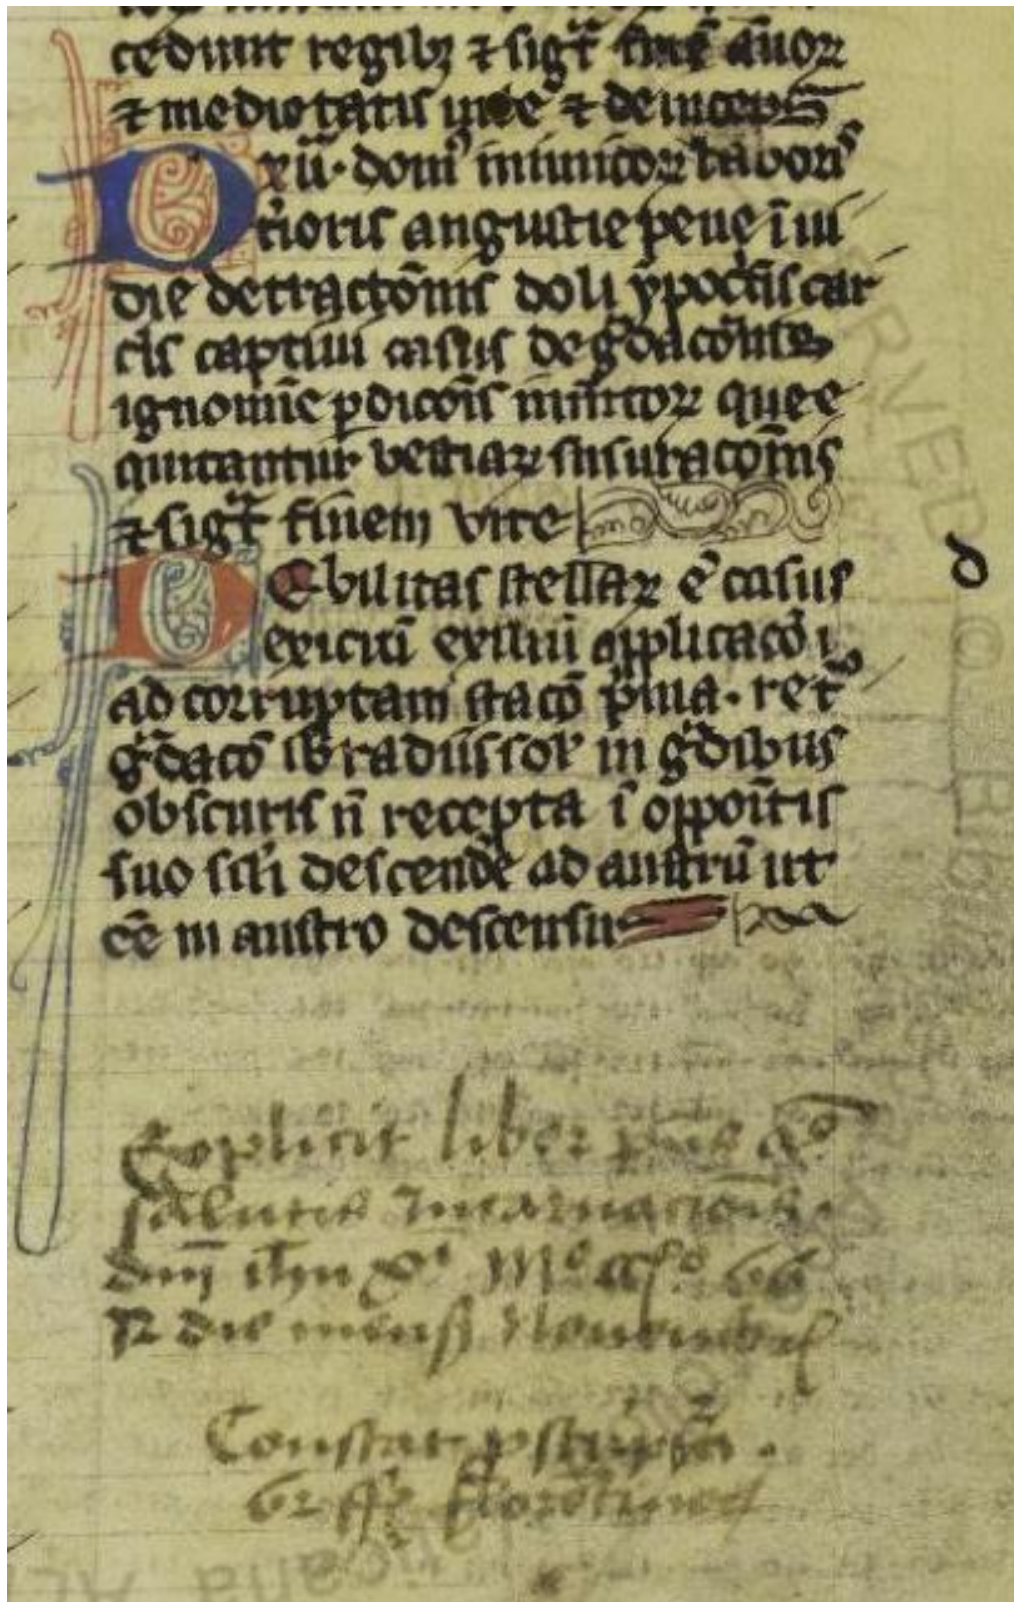 cedunt regibꝫ ⁊ sig͛t finē ānoꝝ
⁊ medietatis uite ⁊ deinceps
Dxii· domꝰ inimicoꝝ laboris
tioris angustie pene ī iu
die detractōnis doli ypoc͛sis car
cis captiui casus deg͛dacōnis
ignomīe ꝑdicōis inimicoꝝ que e
quitantur bestiaꝝ susuracōnis
⁊ sig͛t finem vite
Debilitas stellaꝝ ē casus
exiciū exilium applicacō
ad corruptam stacō pͥma· ret͛
g͛dacō sb radiis sol' in g͛dibus
obscuris n̄ recepta ī oppoītis
suo scil'i descende͛ ad austrū ut
eē in austro descensu
d
Explicit liber
salutis Incarnacionis
dnj ihu xpi Mº 66
12 die mensß Nouembris
Constat